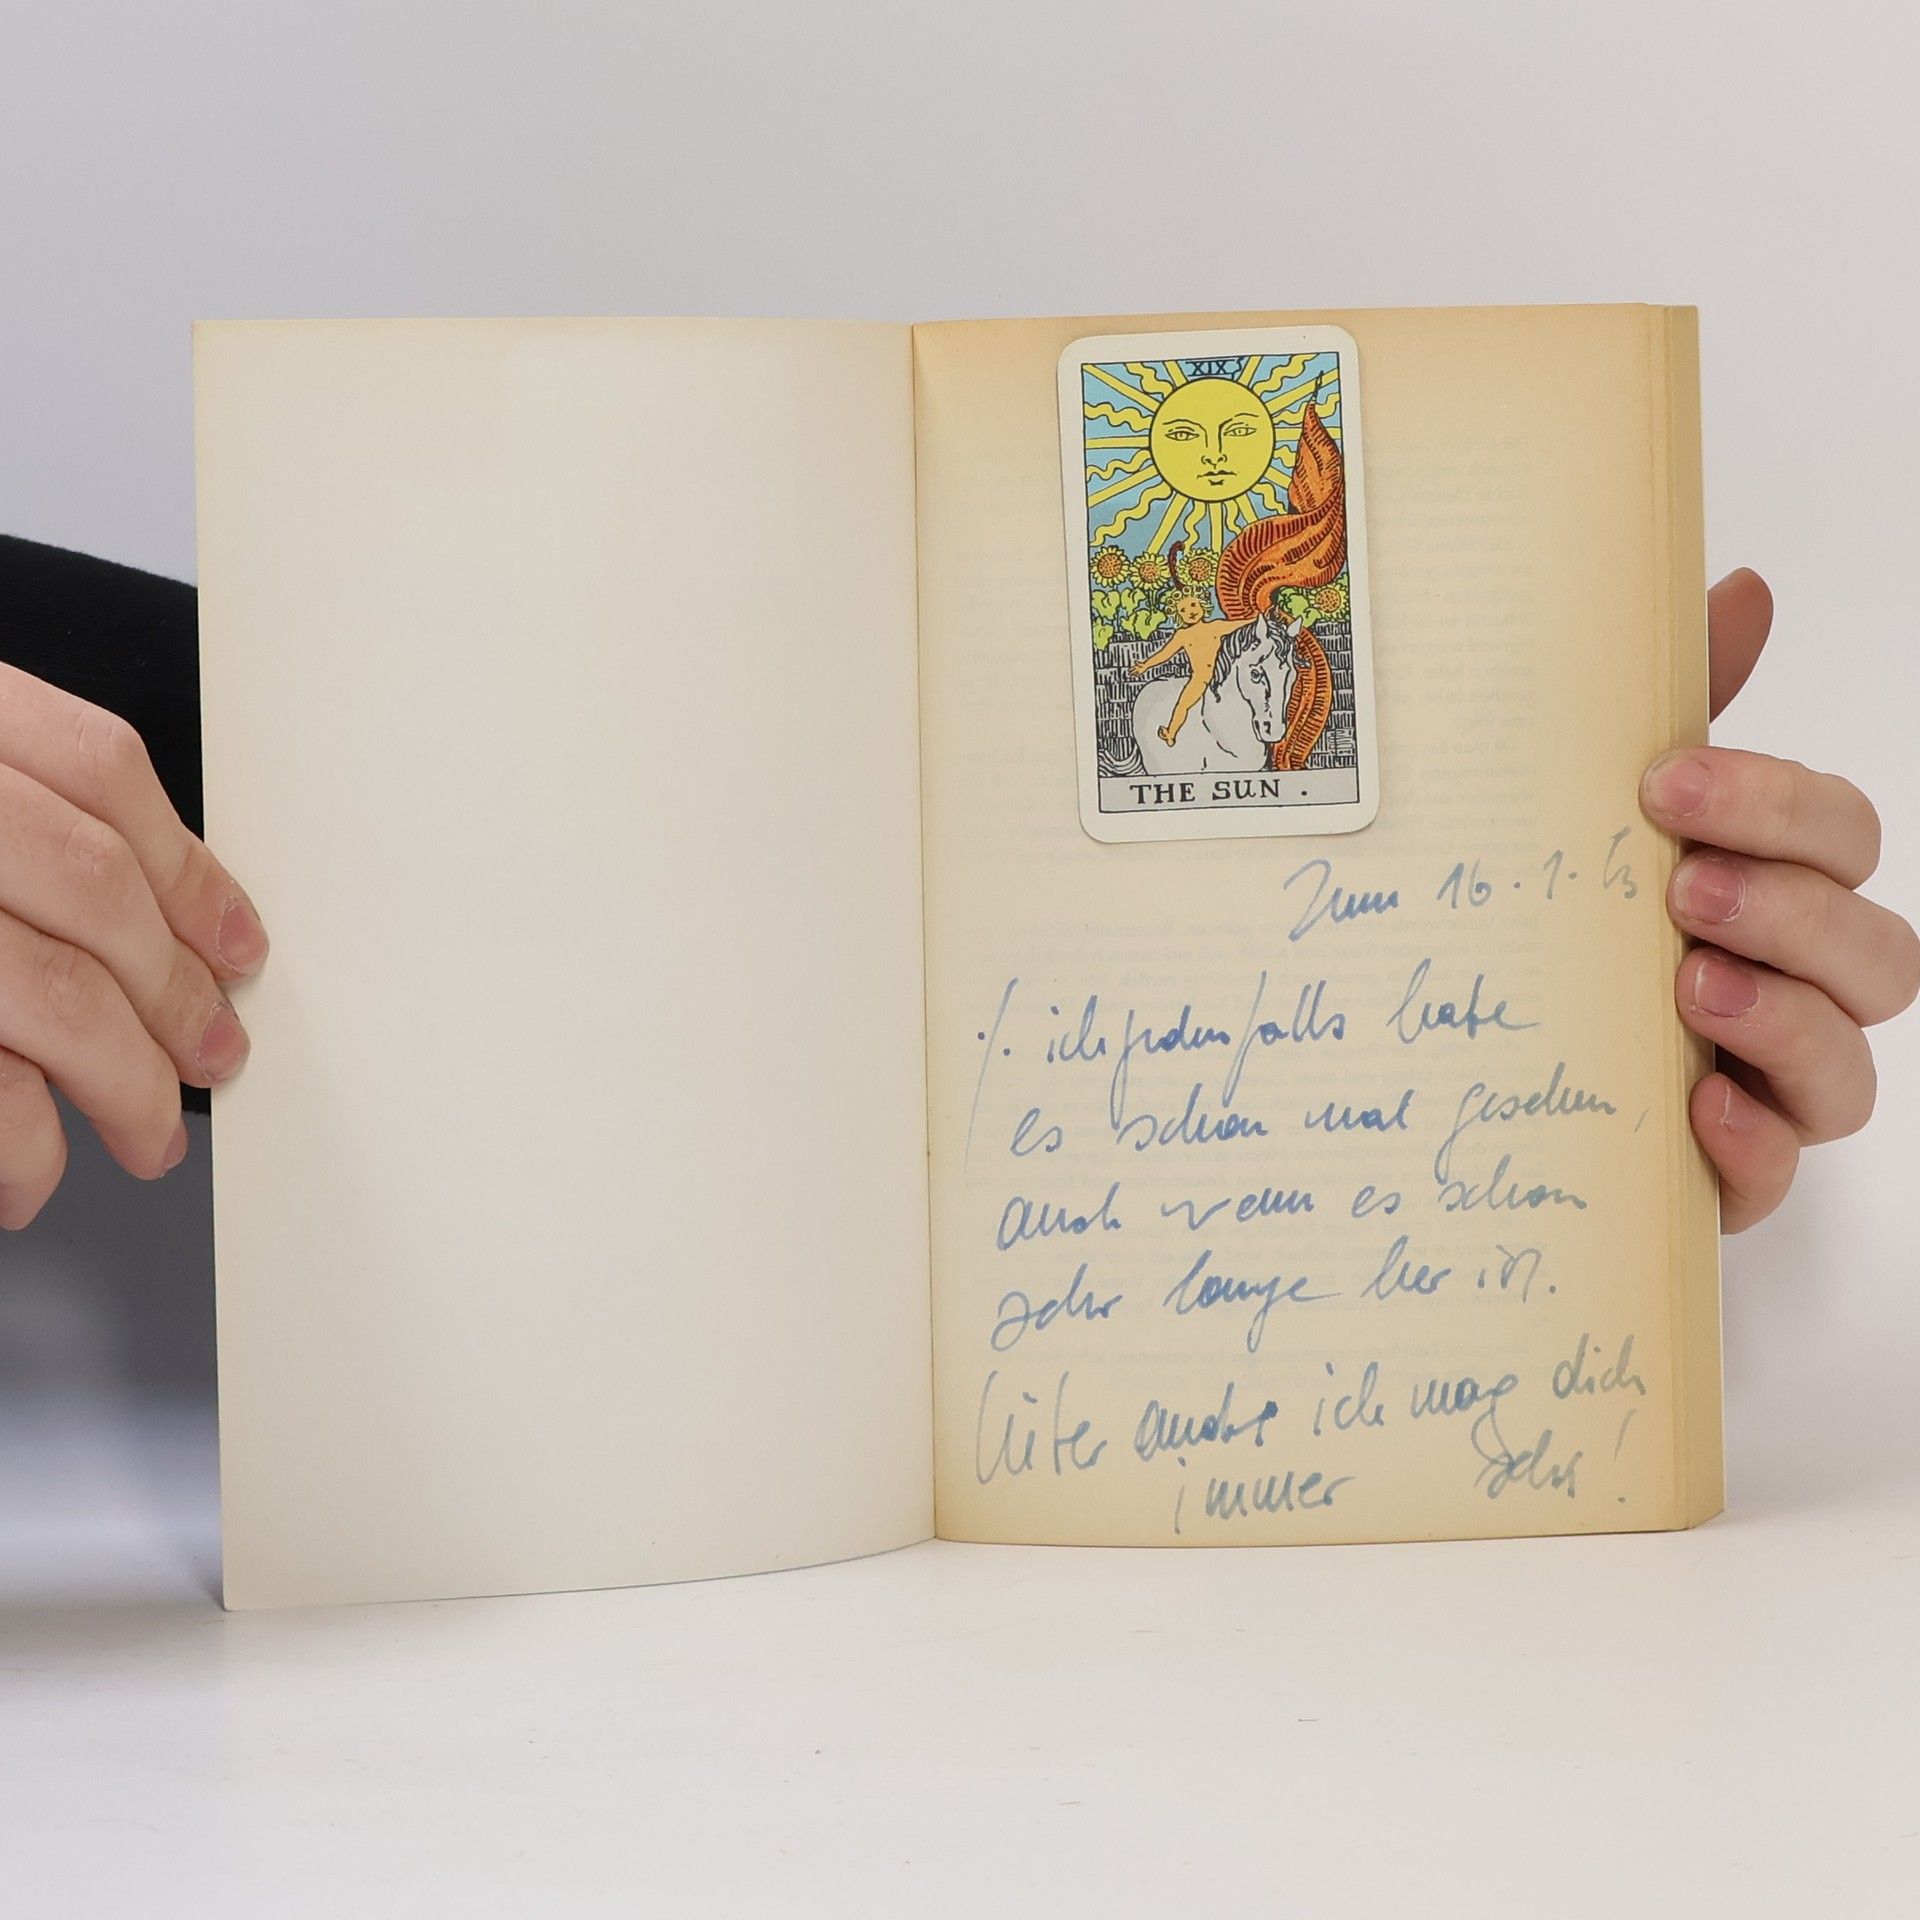 XIX
THE SUN .
Zum 16.1.
./. ich jedenfalls habe
es schon mal gesehen,
auch wenn es schon
sehr lange her ist.
ich mag dich
immer sehr!